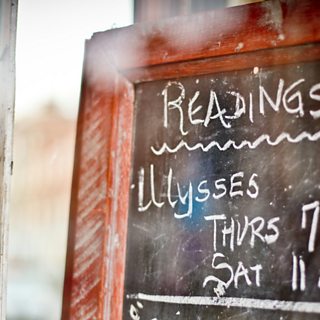 READINGS
ULYSSES
THURS 7
SAT 11